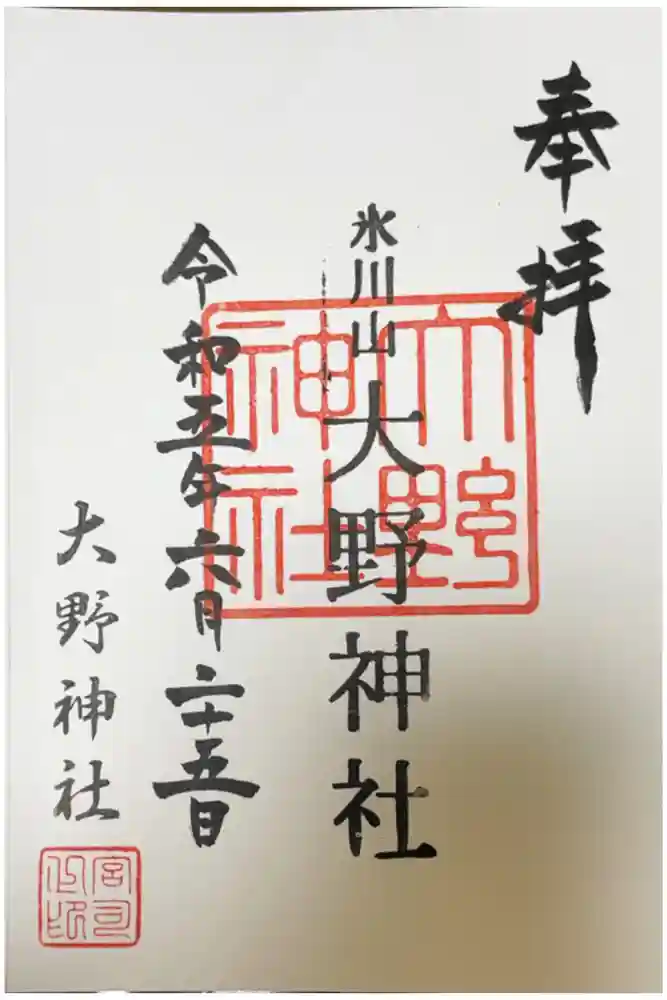 奉拝
氷川山 大野神社
大野神社
令和五年六月二十五日
大野神社
宮司之印